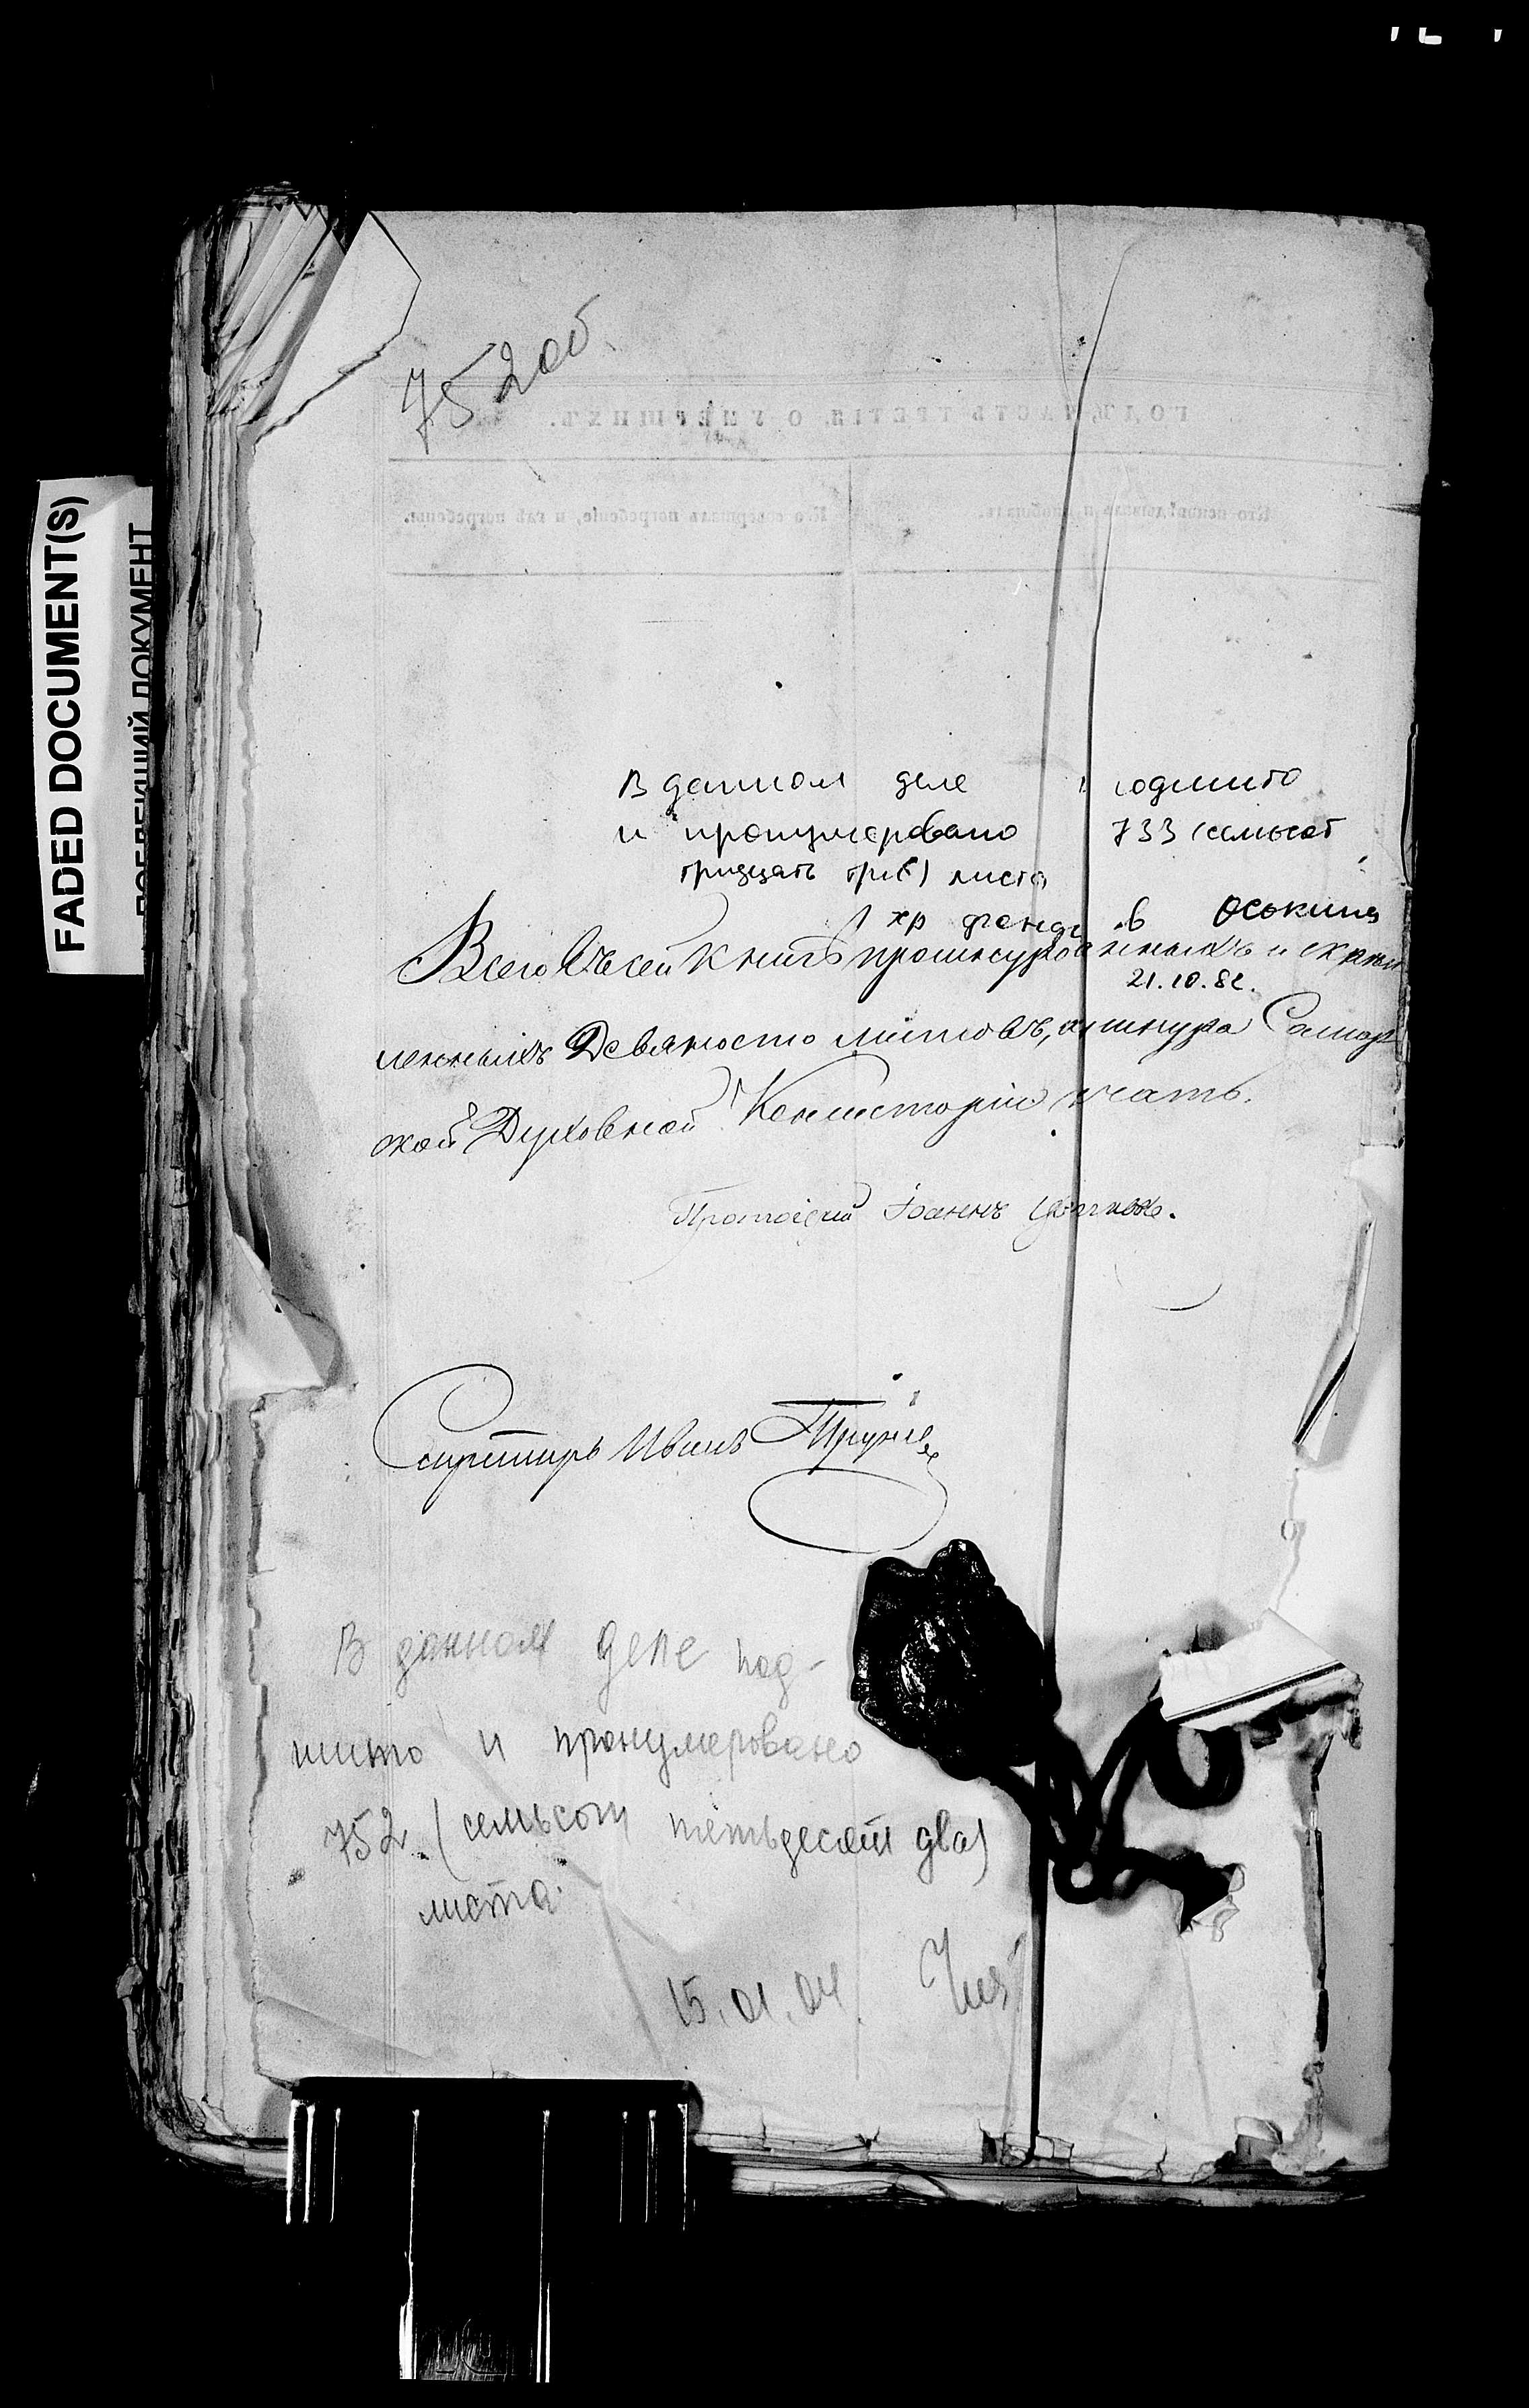 752об
В данном деле подшито
и пронумеровано 733 (семьсот
тридцать три) листа
хр фондов Оськина
21.10.82.
Всего въ сей книгѣ прошнурованныхъ и скрѣп
ленныхъ Девяносто листовъ, а шнура Самар
ской Духовной Консисторіи печать.
Протоіерей Іоаннъ
Секретарь Иванъ
В данном деле под-
шито и пронумеровано
752 (семьсот пятьдесят два)
листа
15.01.04.
FADED DOCUMENT(S)
ДОКУМЕНТ
ГОДЪ, ЧАСТЬ ТРЕТІЯ, О УМЕРШИХЪ.
Кто исповѣдывалъ и пріобщалъ.
Кто совершалъ погребеніе, и гдѣ погребены.